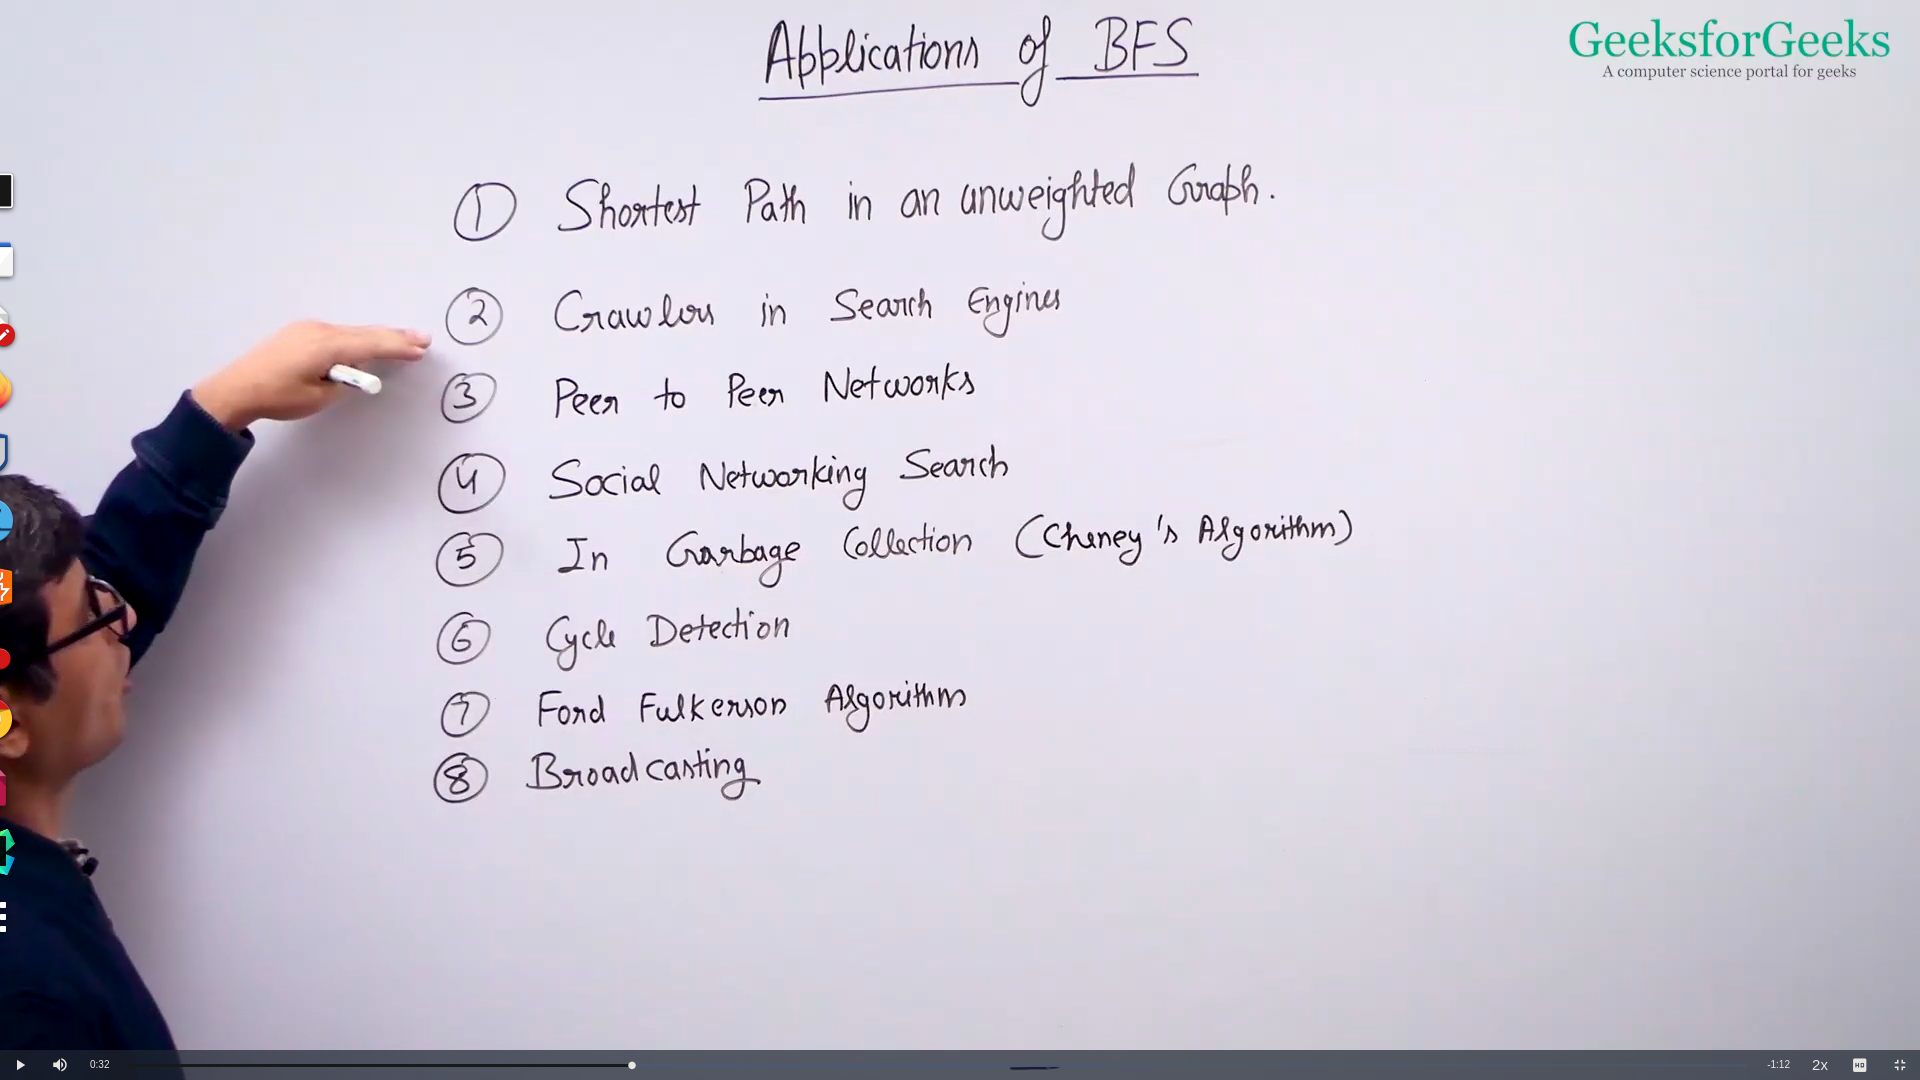 Applications of BFS
GeeksforGeeks
A computer science portal for geeks
1 Shortest Path in an unweighted Graph.
2 Crawlers in Search Engines
3 Peer to Peer Networks
4 Social Networking Search
5 In Garbage Collection (Cheney's Algorithm)
6 Cycle Detection
7 Ford Fulkerson Algorithm
8 Broadcasting
0:32 -1:12 2x HD